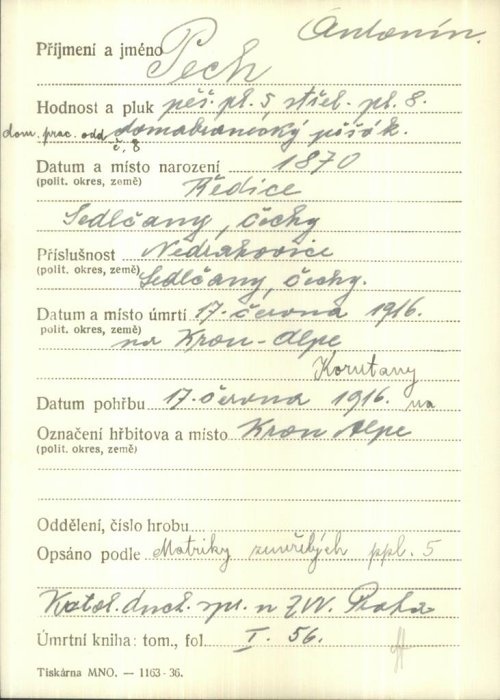 Antonín.
Příjmení a jméno Pech
Hodnost a pluk pěš. pl. 5, střel. pl. 8.
dom. prac. odd. domobranecký pěšák.
č. 8
Datum a místo narození 1870
(polit. okres, země) Ředice
Sedlčany, Čechy
Příslušnost Nedrahovice
(polit. okres, země) Sedlčany, Čechy.
Datum a místo úmrtí 17. června 1916.
polit. okres, země) na Kron-Alpe
Korutany
Datum pohřbu 17. června 1916. na
Označení hřbitova a místo Kron Alpe
(polit. okres, země)
Oddělení, číslo hrobu
Opsáno podle Matriky zemřelých ppl. 5
Katol. duch. spr. u ZVV. Praha
Úmrtní kniha: tom., fol. I. 56.
Tiskárna MNO. — 1163-36.